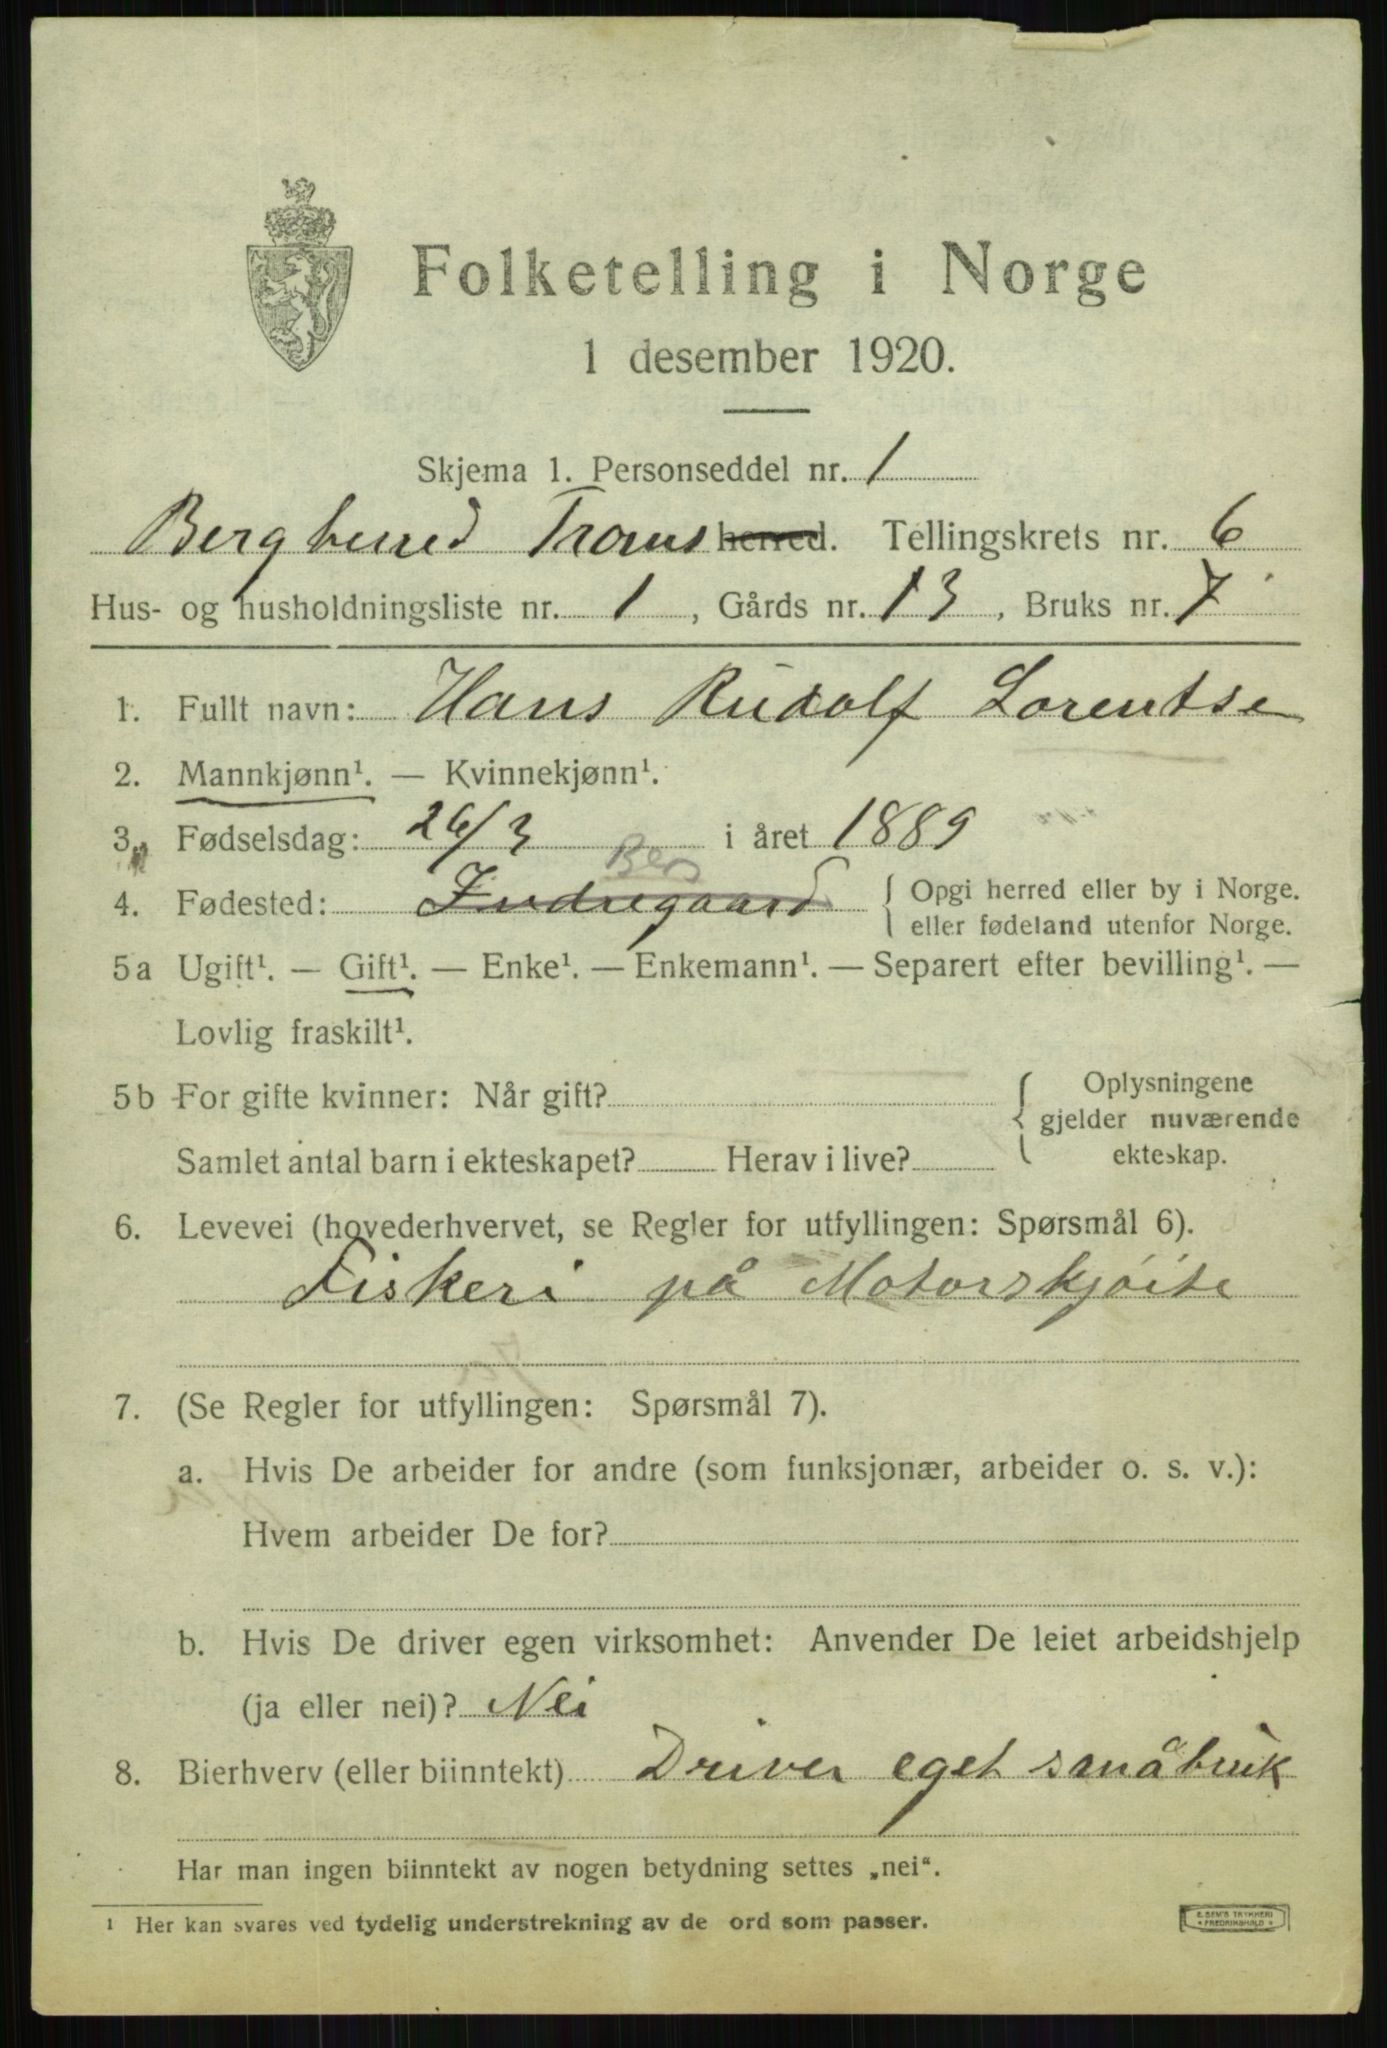 Folketelling i Norge
1 desember 1920.
Skjema 1. Personseddel nr. 1
Bergherred Troms herred. Tellingskrets nr. 6
Hus- og husholdningsliste nr. 1, Gårds nr. 13, Bruks nr. 7
1. Fullt navn: Hans Rudolf Lorentse
2. Mannkjønn¹. — Kvinnekjønn¹.
3. Fødselsdag: 26/3 i året 1889
Berg
4. Fødested: Indregaard { Opgi herred eller by i Norge.
eller fødeland utenfor Norge.
5a Ugift¹. — Gift¹. — Enke¹. — Enkemann¹. — Separert efter bevilling¹. —
Lovlig fraskilt¹.
5b For gifte kvinner: Når gift? { Oplysningene
gjelder nuværende
Samlet antal barn i ekteskapet? Herav i live? ekteskap.
6. Levevei (hovederhvervet, se Regler for utfyllingen: Spørsmål 6).
Fiskeri på Motorskjöite
7. (Se Regler for utfyllingen: Spørsmål 7).
a. Hvis De arbeider for andre (som funksjonær, arbeider o. s. v.):
Hvem arbeider De for?
b. Hvis De driver egen virksomhet: Anvender De leiet arbeidshjelp
(ja eller nei)? Nei
8. Bierhverv (eller biinntekt) Driver eget småbruk
Har man ingen biinntekt av nogen betydning settes „nei“.
¹ Her kan svares ved tydelig understrekning av de ord som passer.
E. SEM'S TRYKKERI
FREDRIKSHALD